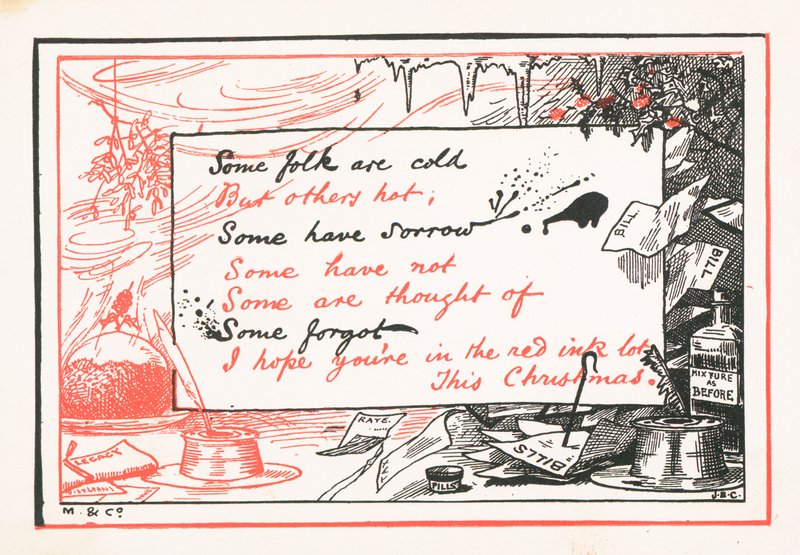 Some folk are cold
But others hot;
Some have sorrow
Some have not
Some are thought of
Some forgot
I hope you're in the red ink lot
This Christmas.
BILL
BILL
MIXTURE
AS
BEFORE
RATE.
TAX
BILLS
PILLS
LEGACY
M. & Co
J.B.C.